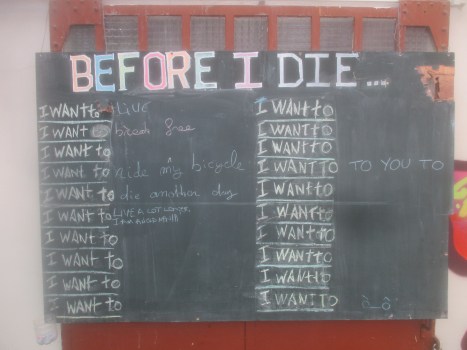 BEFORE I DIE...
I WANT to LIVE
I WANT to break free
I WANT to
I WANT to ride my bicycle
I WANT to die another day
I WANT to LIVE A LOT LONGER,
I WANT to
I WANT to
I WANT to
I WANT to
I WANT to
I WANT to
I WANT to
I WANT to TO YOU TO
I WANT to
I WANT to
I WANT to
I WANT to
I WANT to
I WANT to